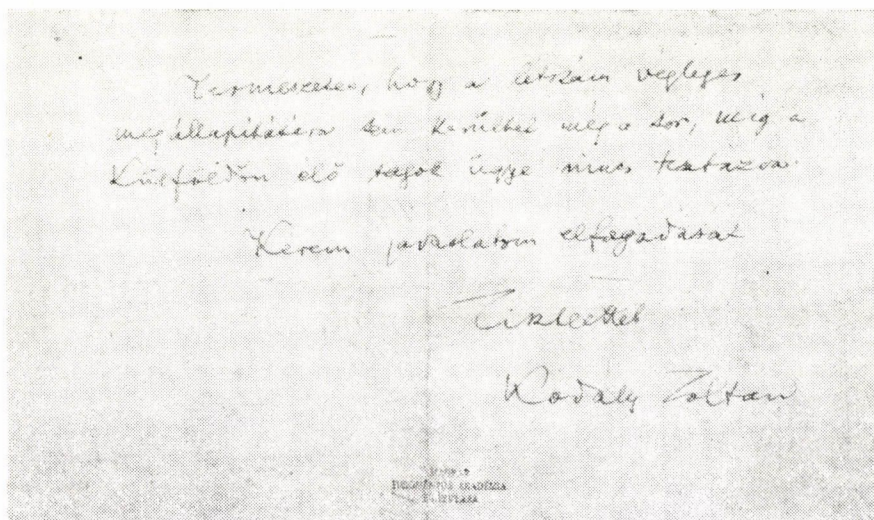 Természetes, hogy a létszám végleges
megállapítására sem kerülhet még a sor, míg a
Külföldön élő tagok ügye nincs tisztázva.
Kérem javaslatom elfogadását
Tisztelettel
Kodály Zoltán
MAGYAR
TUDOMÁNYOS AKADÉMIA
KÖNYVTÁRA